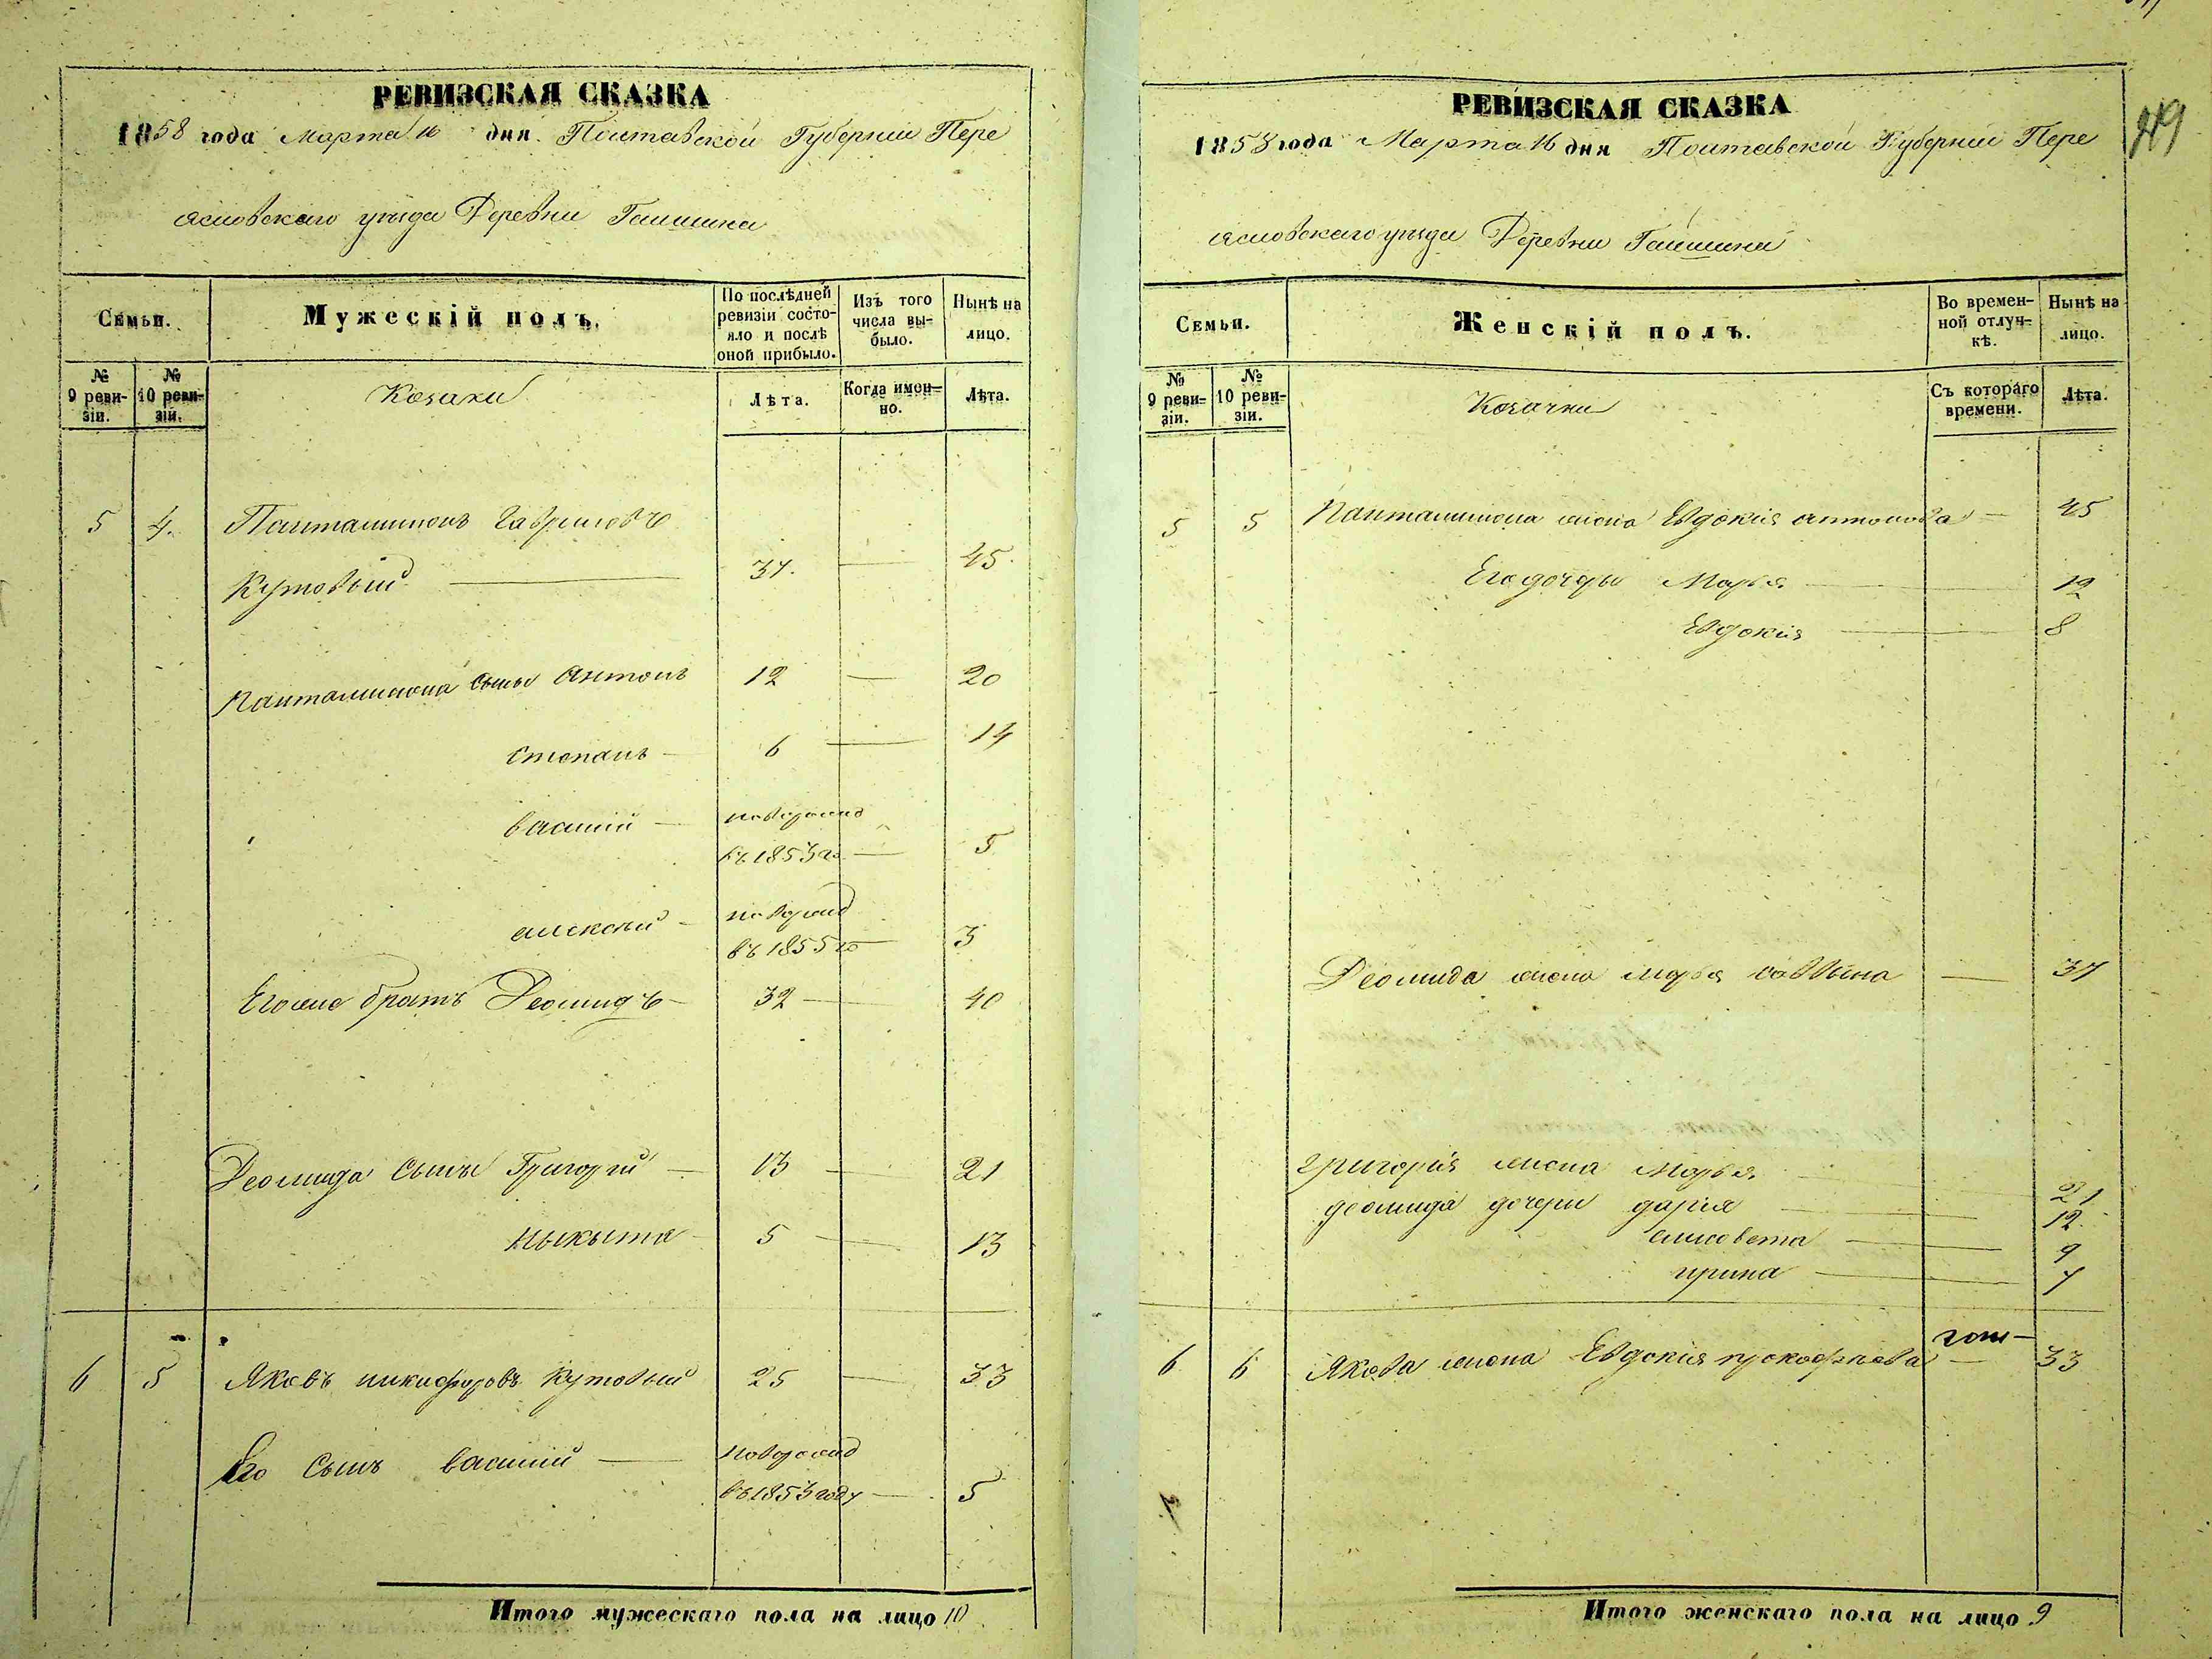 РЕВИЗСКАЯ СКАЗКА
1858 года Марта 16 дня Полтавской Губернии Пере
яславскаго уезда Деревни Гаишина
Семьи.
Мужескій полъ.
По послѣдней ревизіи состояло и послѣ оной прибыло.
Изъ того числа выбыло.
Нынѣ на лицо.
№ 9 ревизіи.
№ 10 ревизіи.
Козаки
Лѣта.
Когда именно.
Лѣта.
5 4. Панталимонъ Гавриловъ
Кутовый — 37. — 45.
Панталимона сыны Антонъ 12 — 20
Степанъ — 6 — 14
Василій — новорожд
въ 1853 го — 5
Алексей — новорожд
въ 1855 го — 3
Его же братъ Деомидъ — 32 — 40
Деомида Сыны Григорій — 13 — 21
Ныкыта — 5 — 13
6 5 Яковъ Никифоровъ Кутовый 25 — 33
Его Сынъ Василій — новорожд
въ 1853 году — 5
Итого мужескаго пола на лицо 10
РЕВИЗСКАЯ СКАЗКА
249
1858 года Марта 16 дня Полтавской Губернии Пере
яславскаго уезда Деревни Гаишина
Семьи.
Женскій полъ.
Во временной отлучкѣ.
Нынѣ на лицо.
№ 9 ревизіи.
№ 10 ревизіи.
Козачки
Съ котораго времени.
Лѣта.
5 5 Панталимона жена Евдокія Антонова — 45
Его дочеры Марья — 12
Евдокія — 8
Деомида жена Марья Саввына — 37
Григорія жена Марья — 21
Деомида дочери Дарія — 12
Елисовета — 9
Ирина — 7
6 6 Якова жена Евдокія Прокофьева — 33
Итого женскаго пола на лицо 9